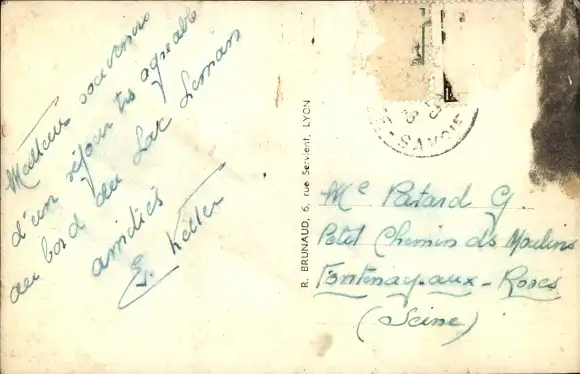 Meilleur souvenirs
d'un séjour très agréable
au bord du Lac Leman
amitiés
E. Keller
R. BRUNAUD, 6, rue Servient, LYON
SAVOIE
Mr Patard G.
Petit Chemin des Moulins
Fontenay-aux-Roses
(Seine)